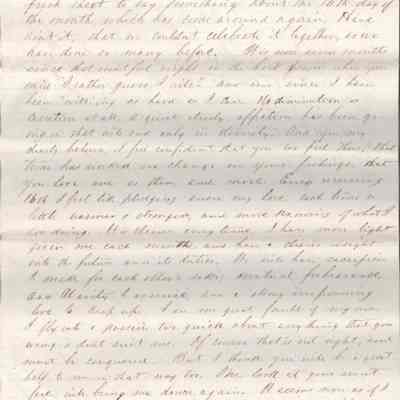 fresh sheet to say something about the 16th day of
the month which has come around again. Hard
isn't it, that we couldn't celebrate it together as we
have done so many before. It is now seven months
since that night in the when you
said "I rather guess I will" and ever since I have
been "willing" as hard as I can. No diminution or
at all. A quiet steady affection has been going
on on that will end only in eternity. And you my
darly believe I feel confident that you too feel thus, that
time has worked no change in your feelings that
you love me as then and more. Every recurring
16th I feel like pledging anew my love each time a
little warmer & stronger, and more knowing of what I
am doing. It's clearer every time. I have more light
given me each month and have a clearer insight
into the future and its duties. We will have sacrifices
to make for each other's sake, mutual forbearance
and to exercise and a strong
love to keep up. I see one great fault of my own
I fly into a passion too quick about everything that goes
wrong & don't suit me. Of course that is not right, and
must be conquered. But I think you will be a great
help to me in that way too. One look at your sweet
face will bring me down again. It seems now as if I